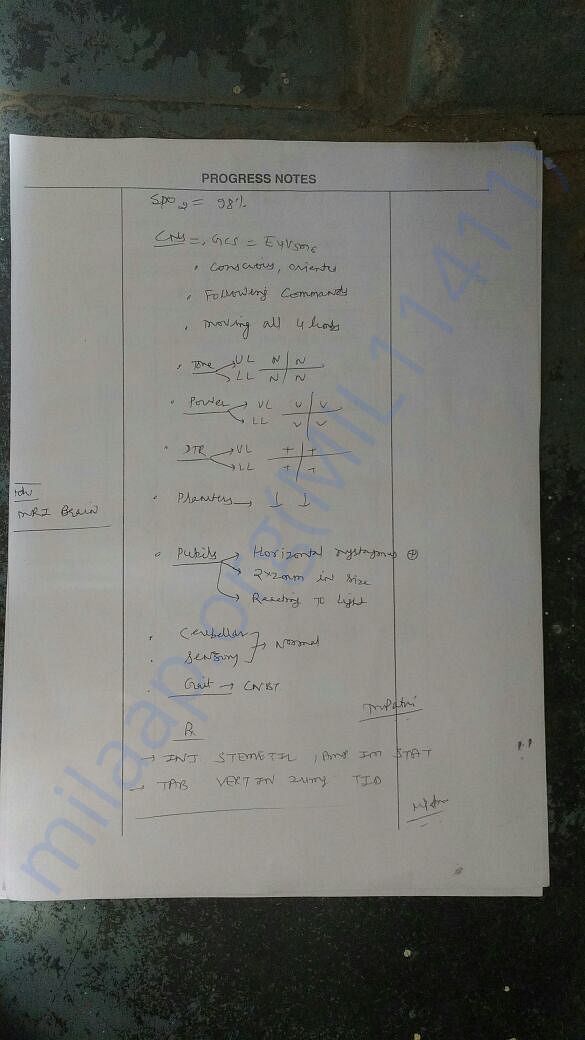 PROGRESS NOTES
SPO2 = 98%
CNS =, GCS = E4V5M6
• Conscious, oriented
• Following Commands
• moving all 4 limbs
• Tone → UL N | N
→ LL N | N
• Power → UL V | V
→ LL V | V
• DTR → UL + | +
→ LL + | +
• Plantars → ↓ ↓
Adv
MRI Brain
• Pupils → Horizontal nystagmus ⊕
→ 2x2mm in size
→ Reacting to light
• Cerebellar
• Sensory → Normal
• Gait → CNBT
Rx
→ INJ STEMETIL 1 Amp IM STAT
→ TAB VERTIN 24mg TID
milaap.org(MIL114111)